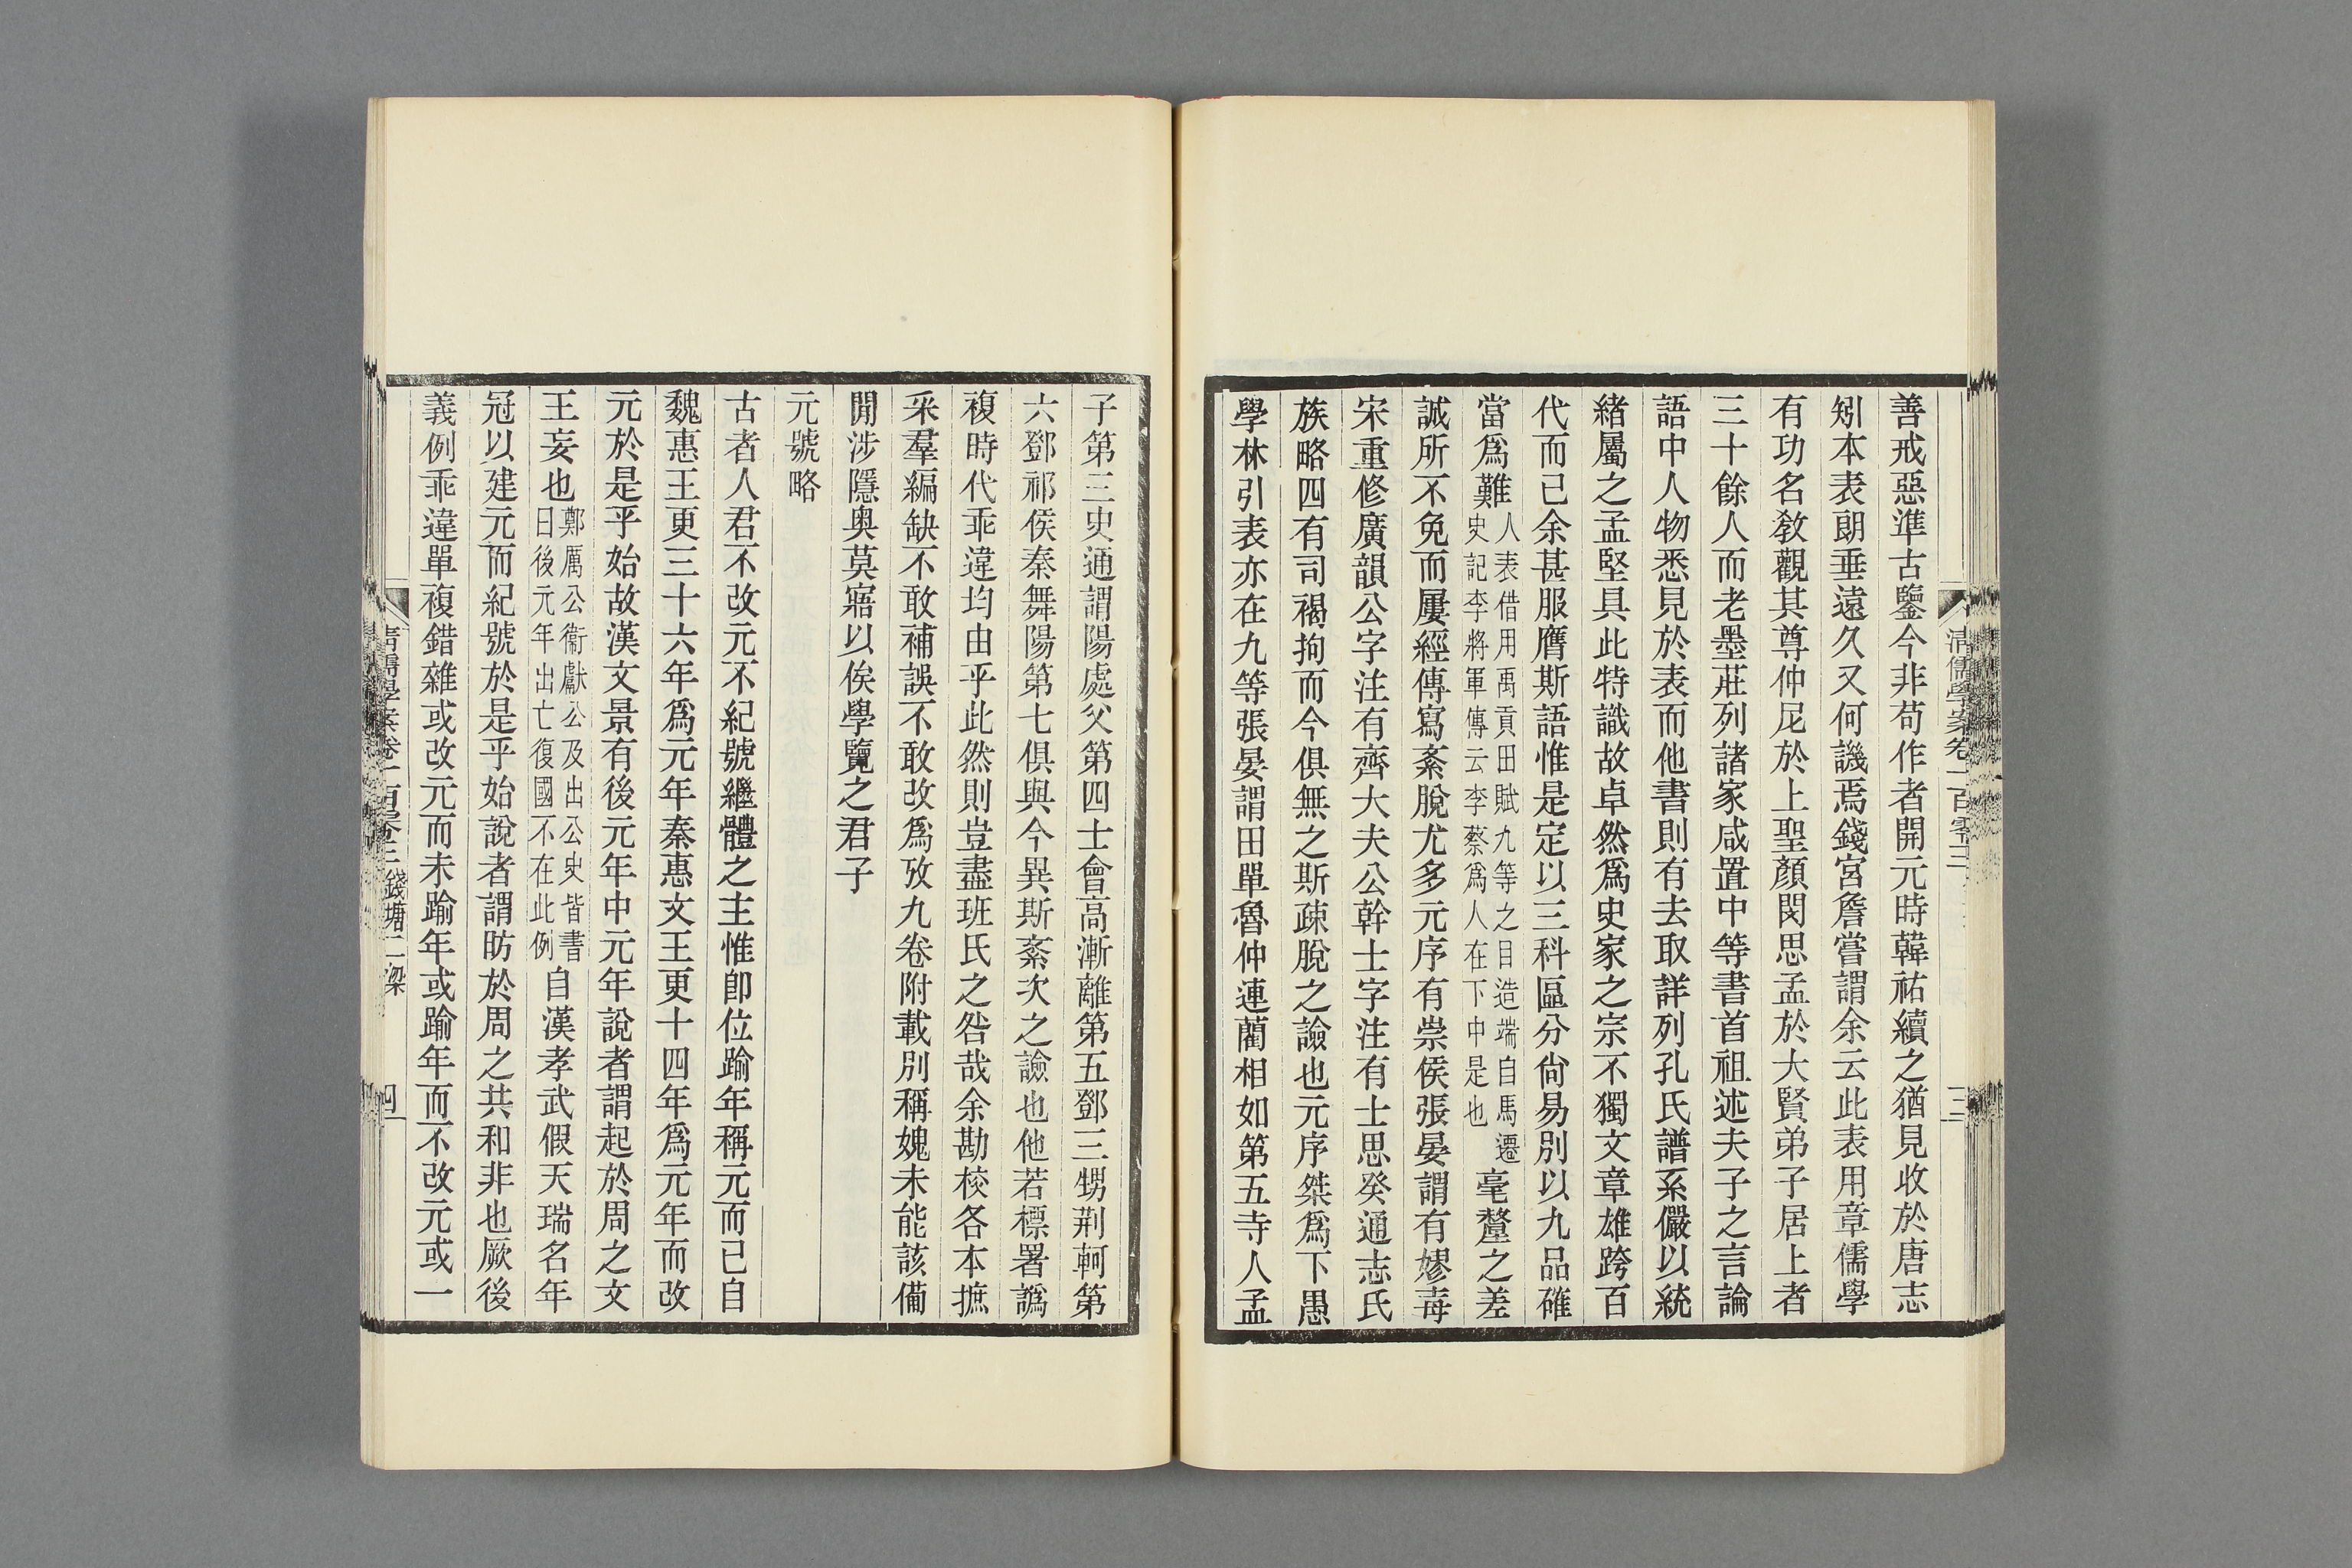 善戒惡準古鑒今非苟作者開元時韓祐續之猶見收於唐志
矧本表朗垂遠久又何譏焉錢宮詹嘗謂余云此表用章儒學
有功名教觀其尊仲尼於上聖顏閔思孟於大賢弟子居上者
三十餘人而老墨莊列諸家咸置中等書首祖述夫子之言論
語中人物悉見於表而他書則有去取詳列孔氏譜系儼以統
緒屬之孟堅具此特識故卓然爲史家之宗不獨文章雄跨百
代而已余甚服膺斯語惟是定以三科區分尙易別以九品確
當爲難人表借用禹貢田賦九等之目造端自馬遷史記李將軍傳云李蔡爲人在下中是也毫釐之差
誠所不免而屢經傳寫紊脫尤多元序有崇侯張晏謂有嫪毐
宋重修廣韻公字注有齊大夫公幹士字注有士思癸通志氏
族略四有司褐拘而今俱無之斯疎脫之譣也元序桀爲下愚
學林引表亦在九等張晏謂田單魯仲連藺相如第五寺人孟
清儒學案卷一百零三
子第三史通謂陽處父第四士會高漸離第五鄧三甥荆軻第
六鄧祁侯秦舞陽第七俱與今異斯紊次之譣也他若標署譌
複時代乖違均由乎此然則豈盡班氏之咎哉余勘校各本摭
采羣編缺不敢補誤不敢改爲攷九卷附載別稱媿未能該備
閒涉隱奥莫寤以俟學覽之君子
元號略
古者人君不改元不紀號繼體之主惟卽位踰年稱元而已自
魏惠王更三十六年爲元年秦惠文王更十四年爲元年而改
元於是乎始故漢文景有後元年中元年說者謂起於周之文
王妄也鄭厲公衞獻公及出公史皆書曰後元年出亡復國不在此例自漢孝武假天瑞名年
冠以建元而紀號於是乎始說者謂昉於周之共和非也厥後
義例乖違單複錯雜或改元而未踰年或踰年而不改元或一
清儒學案卷一百零三 錢塘二梁 四